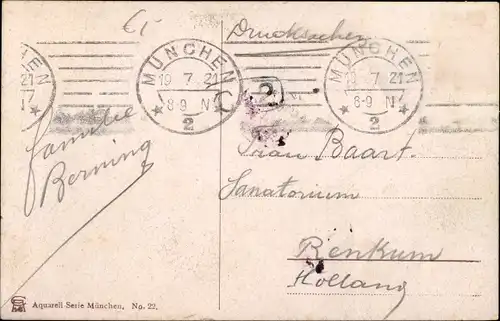 65
Drucksachen
MÜNCHEN
19 7 21
8-9 N
2
MÜNCHEN
19 7 21
8-9 N
2
21
2
Familie
Berning
Frau Baart.
Sanatorium
Renkum
Holland
Aquarell-Serie München, No. 22.